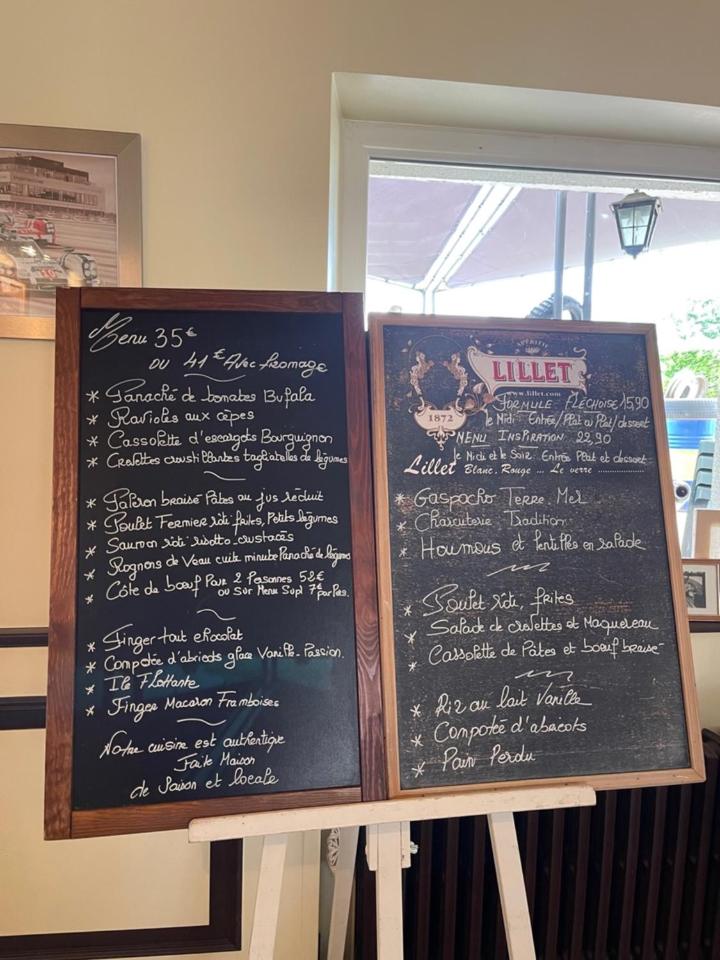 Menu 35€
ou 41€ Avec fromage
* Panaché de tomates Bufala
* Ravioles aux cèpes
* Cassolette d'escargots Bourguignon
* Crolettes croustillantes tagliatelles de légumes
* Paleron braisé Pâtes au jus réduit
* Poulet Fermier rôti frites, Petits légumes
* Saumon rôti risotto crustacés
* Rognons de Veau cuits minute Panaché de légumes
* Côte de bœuf Pour 2 Personnes 58€
ou Sur Menu Supl 7€ par Pers.
* Finger tout chocolat
* Compotée d'abricots glace Vanille-Passion.
* Ile Flottante
* Finger Macaron Framboises
Notre cuisine est authentique
Faite Maison
de Saison et locale
APÉRITIF
LILLET
www.lillet.com
1872
FORMULE FLÉCHOISE 15,90
le Midi Entrée/Plat ou Plat/dessert
MENU INSPIRATION 22,90
le Midi et le Soir Entrée Plat et dessert
Lillet Blanc, Rouge ... Le verre ...............
* Gaspacho Terre Mer
* Charcuterie Tradition
* Houmous et lentilles en salade
* Poulet rôti, frites
* Salade de crolettes et Maquereau
* Cassolette de Pâtes et bœuf braisé
* Riz au lait Vanille
* Compotée d'abricots
* Pain Perdu